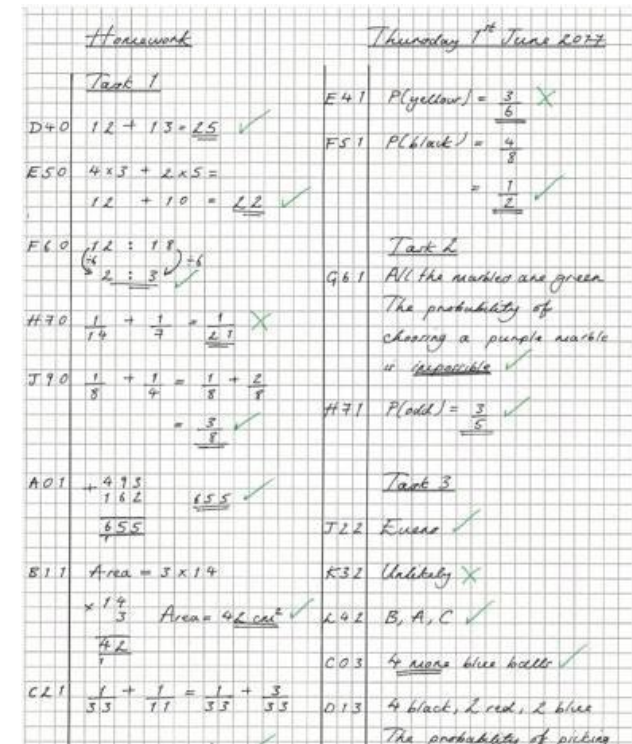 Homework
Thursday 1st June 2017
Task 1
D40 12 + 13 = 25 ✓
E50 4 × 3 + 2 × 5 =
12 + 10 = 22 ✓
F60 12 : 18
÷6 ÷6
2 : 3 ✓
H70 1/14 + 1/7 = 1/21 ✗
J90 1/8 + 1/4 = 1/8 + 2/8
= 3/8 ✓
A01 + 493
162 655 ✓
655
1
B11 Area = 3 × 14
× 14
3 Area = 42 cm² ✓
42
1
C21 1/33 + 1/11 = 1/33 + 3/33
E41 P(yellow) = 3/6 ✗
F51 P(black) = 4/8
= 1/2 ✓
Task 2
G61 All the marbles are green
The probability of
choosing a purple marble
is impossible ✓
H71 P(odd) = 3/5 ✓
Task 3
J22 Evens ✓
K32 Unlikely ✗
L42 B, A, C ✓
C03 4 more blue balls ✓
D13 4 black, 2 red, 2 blue
The probability of picking